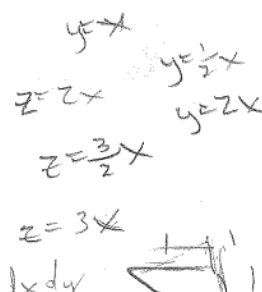 y=x
y=½x
z=2x
y=2x
z=3/2 x
z=3x
dx dy